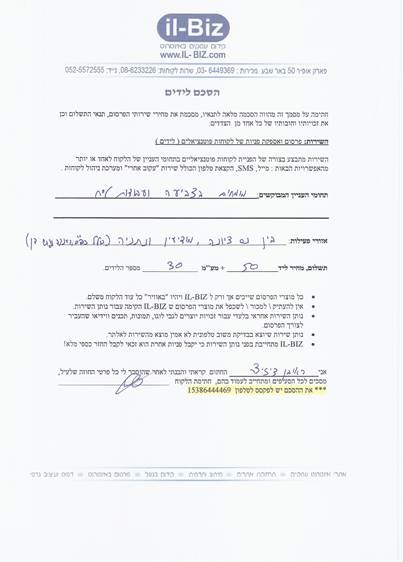 il-Biz
קידום עסקים באינטרנט
www.IL-BIZ.com
פארק אופיר 50 באר שבע מכירות : 6449369 -03, שרות לקוחות: 08-6233226, נייד: 052-5572555
הסכם לידים
חתימה על מסמך זה מהווה הסכמה מלאה לתנאיו, מסכמת את מחירי שירותי הפרסום, תנאי התשלום וכן
את זכויותיו וחובותיו של כל אחד מן הצדדים.
השירות: פרסום ואספקת פניות של לקוחות פוטנציאליים ( לידים )
השירות מתבצע בצורה של הפניית לקוחות פוטנציאליים בתחומי העניין של הלקוח לאחד או יותר
מהאפשרויות הבאות : מייל, SMS, הקצאת טלפון הכולל שירות "עקוב אחרי" ומערכת ניהול לקוחות .
תחומי העניין המבוקשים: מומחים בצביעה ועבודות
אזורי פעילות: בין נס ציונה, מודיעין ונתניה (כולל
תשלום, מחיר לליד 50 + מע"מ 30 מספר הלידים.
• כל מוצרי הפרסום שייכים אך ורק ל IL-BIZ ויהיו "באוויר" כל עוד הלקוח משלם.
• אין להעתיק \ למכור \ לשכפל את מוצרי הפרסום ש IL-BIZ הקימה עבור נותן השירות.
• נותן השירות אחראי בלעדי עבור זכויות יוצרים לגבי לוגו, תמונות, תכנים ווידיאו שהעביר
לצורך הפרסום.
• נותן שירות שיוצא בבדיקת משוב טלפונית לא אמין מוצא מהשירות לאלתר.
• IL-BIZ מתחייבת בפני נותן השירות כי יקבל פניות אחרת הוא זכאי לקבל החזר כספי מלא!
אני ראובן החתום קראתי והבנתי לאחר שהוסבר לי כל פרטי החוזה שלעיל,
מסכים לכל הסעיפים ומתחייב לעמוד בהם, חתימת הלקוח
*** את ההסכם יש לפקסס לטלפון 15386444469